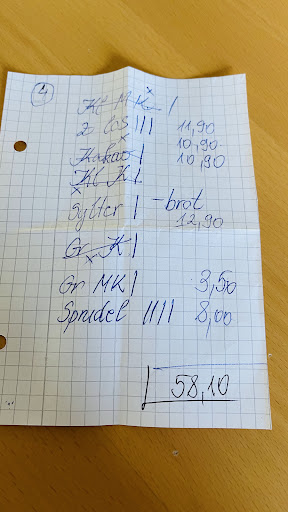 4
Kl MK I
2 COS III 11,90
10,90
Kakao I 10,90
Kl K I
Sylter I - brot
12,90
Gr K I
Gr MK I 3,50
Sprudel IIII 8,00
58,10